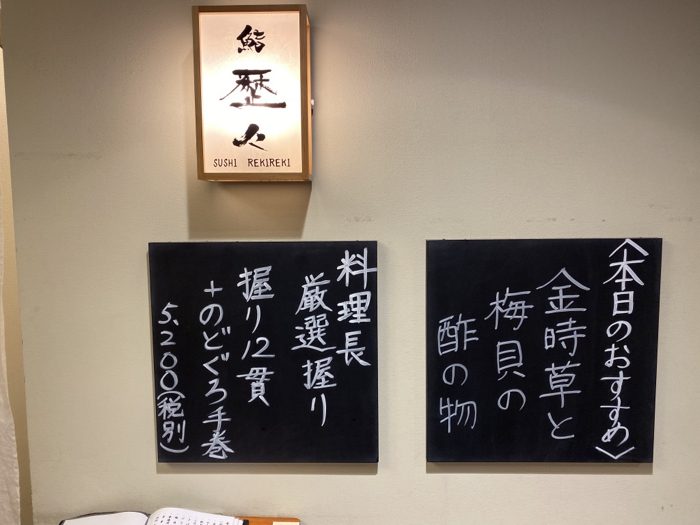 鮨
歴々
SUSHI REKIREKI
料理長
厳選握り
握り12貫
+のどぐろ手巻
5,200(税別)
〈本日のおすすめ〉
金時草と
梅貝の
酢の物